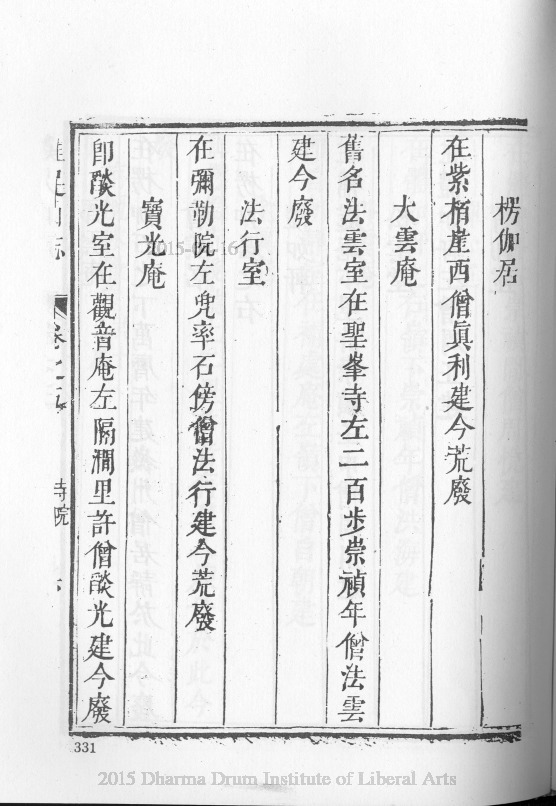 楞伽居
在紫栢崖西僧眞利建今荒廢
大雲庵
舊名法雲室在聖峯寺左二百步崇禎年僧法雲
建今廢
法行室
在彌勒院左兜率石傍僧法行建今荒廢
寶光庵
卽燄光室在觀音庵左隔澗里許僧燄光建今廢
卷之五 寺院
331
2015 Dharma Drum Institute of Liberal Arts